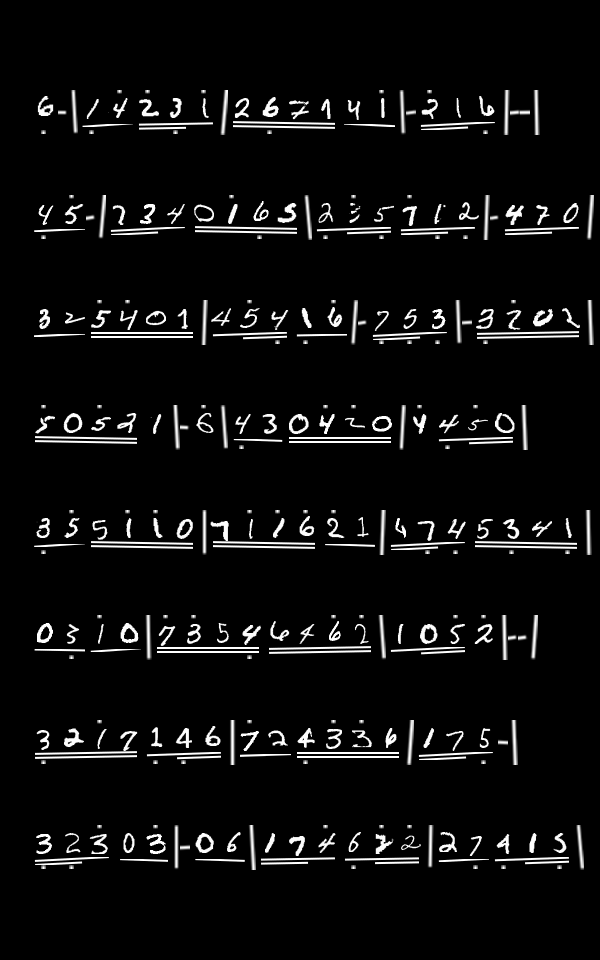 6-|14231|267141|-216|--|
45-|7340165|235712|-470|
325401|45416|-753|-3202|
50521|-6|430420|4450|
355110|711621|4745341|
0310|73546462|1052|--|
3217146|724336|175-|
32303|-06|174672|27415|